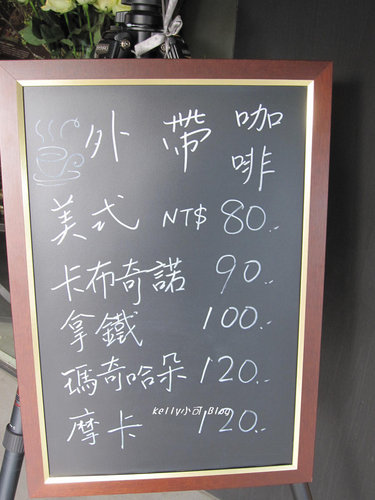 外帶咖啡
美式 NT$ 80..
卡布奇諾 90..
拿鐵 100..
瑪奇哈朵 120..
kelly小可.Blog
摩卡 120..